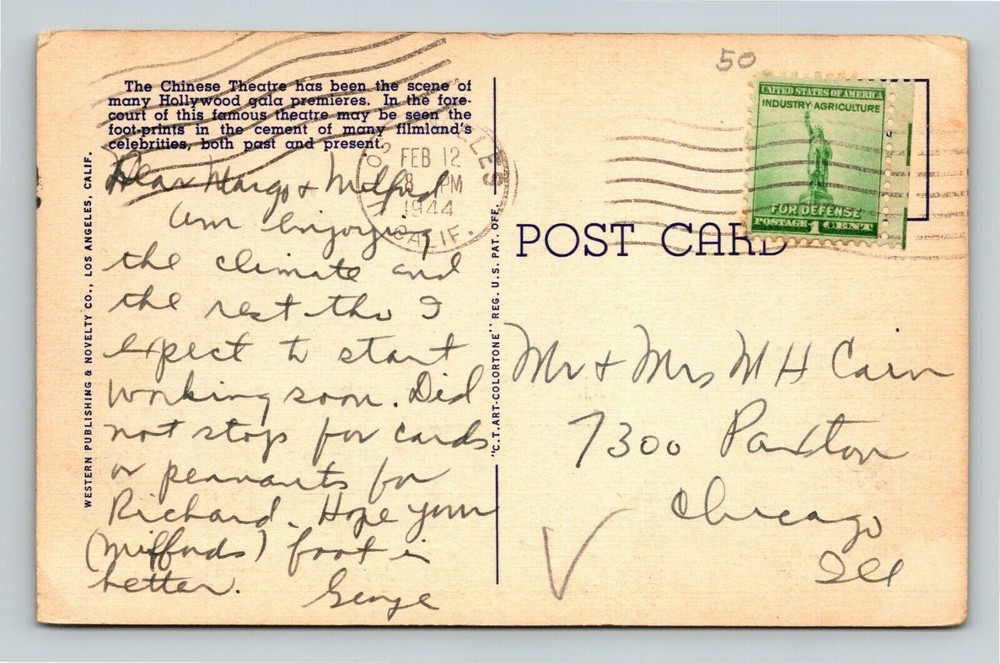 50
The Chinese Theatre has been the scene of
many Hollywood gala premieres. In the fore-
court of this famous theatre may be seen the
foot-prints in the cement of many filmland's
celebrities, both past and present.
Dear Margo & Milford
Am Enjoying
the climate and
the rest tho I
expect to start
working soon. Did
not stop for cards
or pennants for
Richard. Hope your
(Milfords) foot is
better. George
WESTERN PUBLISHING & NOVELTY CO., LOS ANGELES, CALIF.
"C.T. ART-COLORTONE" REG. U.S. PAT. OFF.
LOS ANGELES
FEB 12
8 PM
1944
CALIF.
UNITED STATES OF AMERICA
INDUSTRY·AGRICULTURE
FOR DEFENSE
POSTAGE 1 CENT
POST CARD
Mr & Mrs M H Carn
7300 Paxton
Chicago
Ill